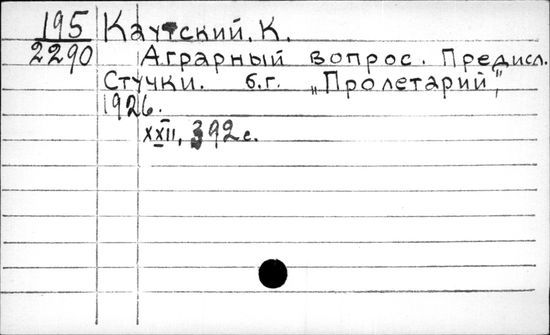 195 Каутский, К.
2290 Аграрный вопрос. Предисл.
Стучки. б.г. „Пролетарий",
1926.
XXII, 392 с.